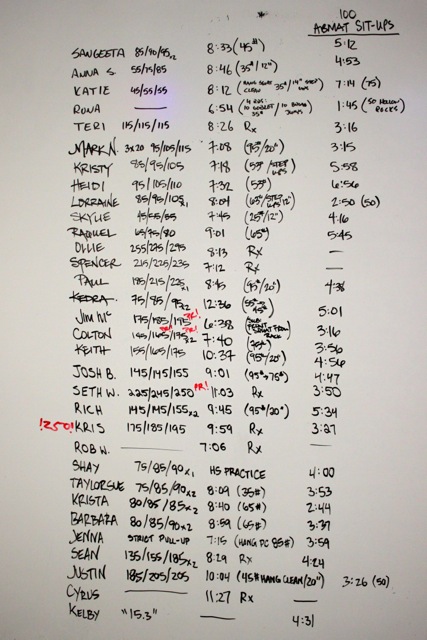 100
ABMAT SIT-UPS
SANGEETA 85/90/95x2 8:33 (45#) 5:12
ANNA S. 55/75/85 8:46 (35#/12") 4:53
KATIE 45/55/55 8:12 7:14 (75)
RONA — 6:54 1:45 (50 HOLLOW ROCKS)
TERI 115/115/115 8:26 Rx 3:16
MARK N. 3x20 95/105/115 7:08 (95#/20") 3:15
KRISTY 85/95/105 7:18 (53#/STEP UPS) 5:58
HEIDI 95/105/110 7:32 (53#) 6:56
LORRAINE 85/95/105x1 8:04 2:50 (50)
SKYLIE 45/55/65 7:45 (25#/12") 4:16
RAQUEL 65/75/80 9:01 (65#) 5:45
OLLIE 255/275/295 8:13 Rx —
SPENCER 215/225/235 7:12 Rx —
PAUL 185/215/225x1 8:45 (95#/20") 4:38
KEDRA 75/85/95x2 12:36 5:01
JIM MC 175/185/195 PR! 6:38
COLTON 155/165/175x2 PR! 7:40 3:16
KEITH 155/165/175 10:37 (95#/20") 3:56
4:56
JOSH B. 145/145/155 9:01 (95#>75#) 4:47
SETH W. 225/245/250 PR! 11:03 Rx 3:50
RICH 145/145/155x2 9:45 (95#/20") 5:34
!250! KRIS 175/185/195 9:59 Rx 3:27
ROB W. — 7:06 Rx —
SHAY 75/85/90x1 HS PRACTICE 4:00
TAYLORSUE 75/85/90x2 8:09 (35#) 3:53
KRISTA 80/85/85x2 8:40 (65#) 2:44
BARBARA 80/85/90x2 8:59 (65#) 3:37
JENNA STRICT PULL-UP 7:15 (HANG PC 85#) 3:59
SEAN 135/155/185x2 8:29 Rx 4:24
JUSTIN 185/205/205 10:04 (45# HANG CLEAN/20") 3:26 (50)
CYRUS — 11:27 Rx —
KELBY "15.3" — 4:31